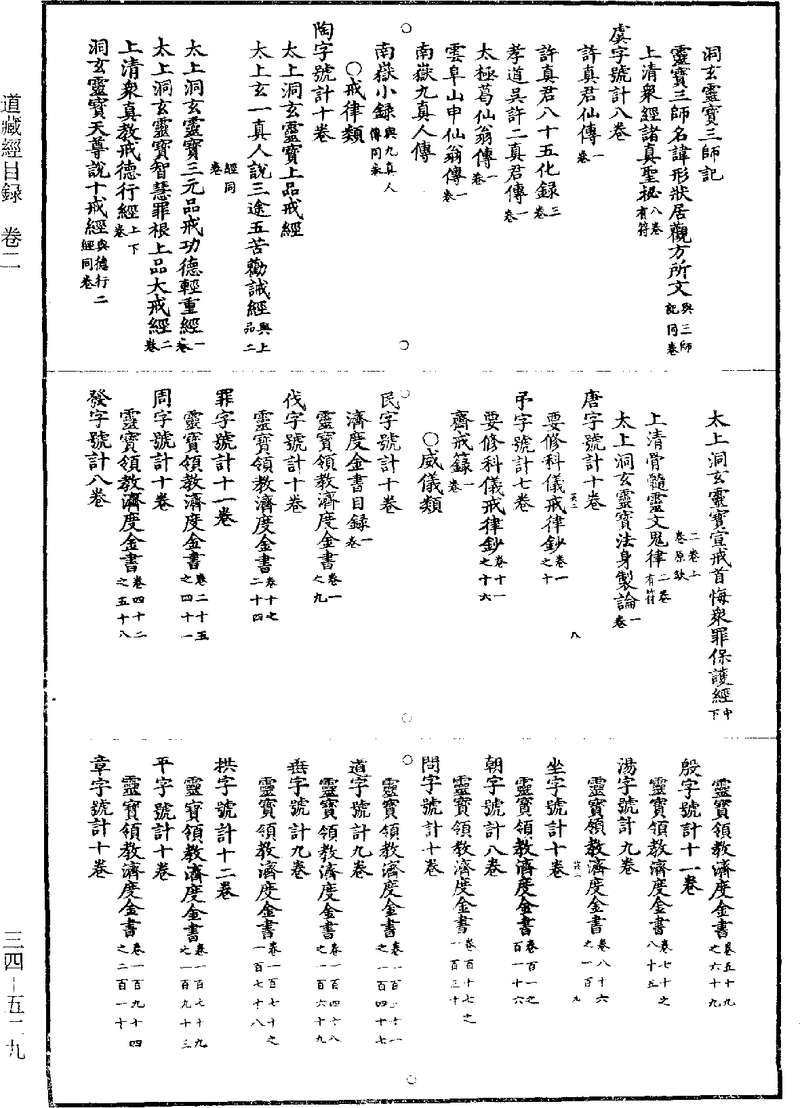 道藏經目録　卷二
洞玄靈寶三師記
靈寶三師名諱形狀居觀方所文與三師記同卷
上清衆經諸真聖祕八卷有符
虞字號計八卷
許真君仙傳一卷
許真君八十五化録三卷
孝道吳許二真君傳一卷
太極葛仙翁傳一卷
雲阜山申仙翁傳一卷
南嶽九真人傳
南嶽小録與九真人傳同卷
○戒律類
陶字號計十卷
太上洞玄靈寶上品戒經
太上玄一真人說三途五苦勸誡經與上品二經同卷
太上洞玄靈寶三元品戒功德輕重經一卷
太上洞玄靈寶智慧罪根上品大戒經二卷
上清衆真教戒德行經上下卷
洞玄靈寶天尊說十戒經與德行二經同卷
太上洞玄靈寶宣戒首悔衆罪保護經中下二卷上卷原缺
上清骨髓靈文鬼律二卷有符
太上洞玄靈寶法身製論一卷
唐字號計十卷
要修科儀戒律鈔卷一之十
弔字號計七卷
要修科儀戒律鈔卷十一之十六
齋戒籙一卷
○威儀類
民字號計十卷
濟度金書目録一卷
靈寶領教濟度金書卷一之九
伐字號計十卷
靈寶領教濟度金書卷十之二十四
罪字號計十一卷
靈寶領教濟度金書卷二十五之四十一
周字號計十卷
靈寶領教濟度金書卷四十二之五十八
發字號計八卷
靈寶領教濟度金書卷五十九之六十九
殷字號計十一卷
靈寶領教濟度金書卷七十之八十五
湯字號計九卷
靈寶領教濟度金書卷八十六之一百
坐字號計十卷
靈寶領教濟度金書卷百一之百一十六
朝字號計八卷
靈寶領教濟度金書卷百十七之一百三十
問字號計十卷
靈寶領教濟度金書卷一百三十一之一百四十七
道字號計九卷
靈寶領教濟度金書卷一百四十八之一百六十九
垂字號計九卷
靈寶領教濟度金書卷一百七十之一百七十八
拱字號計十二卷
靈寶領教濟度金書卷一百七十九之一百九十三
平字號計十卷
靈寶領教濟度金書卷一百九十四之二百一十
章字號計十卷
三四－五二九